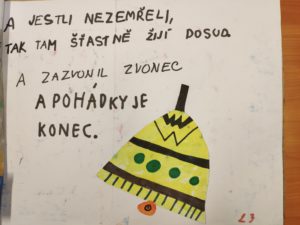 A JESTLI NEZEMŘELI,
TAK TAM ŠŤASTNĚ ŽIJÍ DOSUD
A ZAZVONIL ZVONEC
A POHÁDKY JE
KONEC.
23